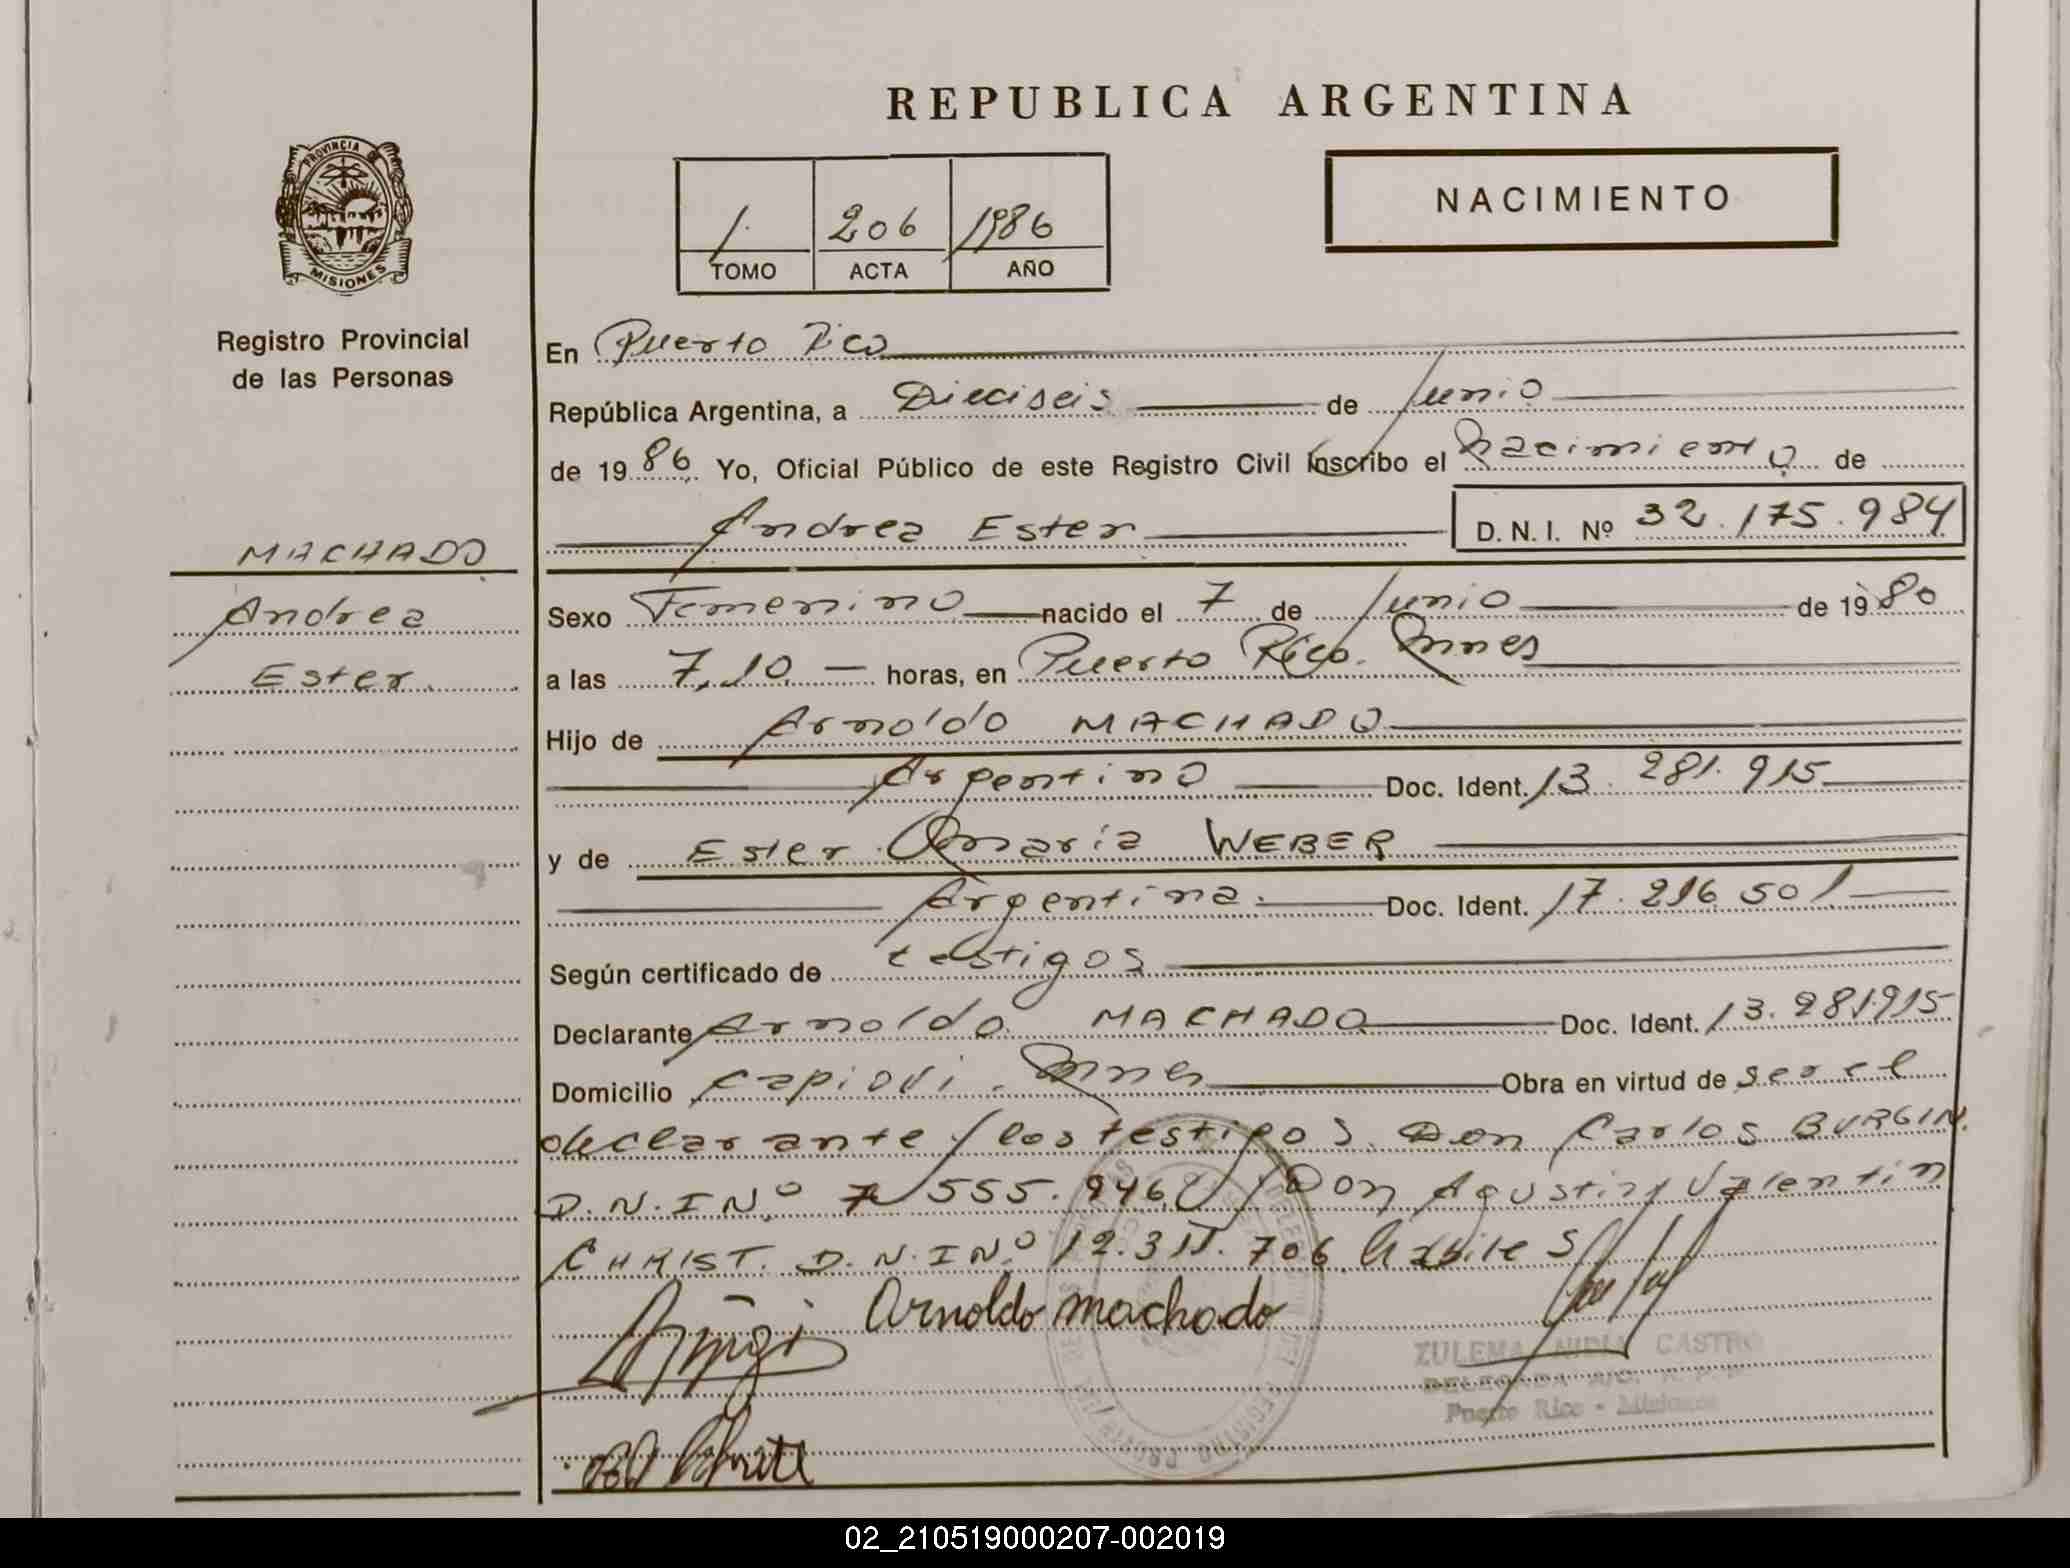 REPUBLICA ARGENTINA
PROVINCIA DE
MISIONES
Registro Provincial
de las Personas
1. 206 1986
TOMO ACTA AÑO
NACIMIENTO
En Puerto Rico
República Argentina, a Dieciseis de Junio
de 1986. Yo, Oficial Público de este Registro Civil Inscribo el Nacimiento de
Andrea Ester D. N. I. Nº 32.175.984
MACHADO
Andrea
Ester.
Sexo Femenino nacido el 7 de Junio de 1980
a las 7,10 — horas, en Puerto Rico. Mnes
Hijo de Arnoldo MACHADO
Argentino Doc. Ident. 13.281.915
y de Ester Maria WEBER
Argentina. Doc. Ident. 17.216.501
Según certificado de testigos
Declarante Arnoldo MACHADO Doc. Ident. 13.281915
Domicilio Capiovi. Mnes Obra en virtud de ser el
declarante y los testigos. Don Carlos BURGIN.
D.N.I Nº 7.555.946 y Don Agustin Valentin
CHRIST. D.N.I Nº 12.311.706 habiles
Arnoldo machado
ZULEMA NIDIA CASTRO
DELEGADA A/C. R. P. P.
Puerto Rico - Misiones
02_210519000207-002019